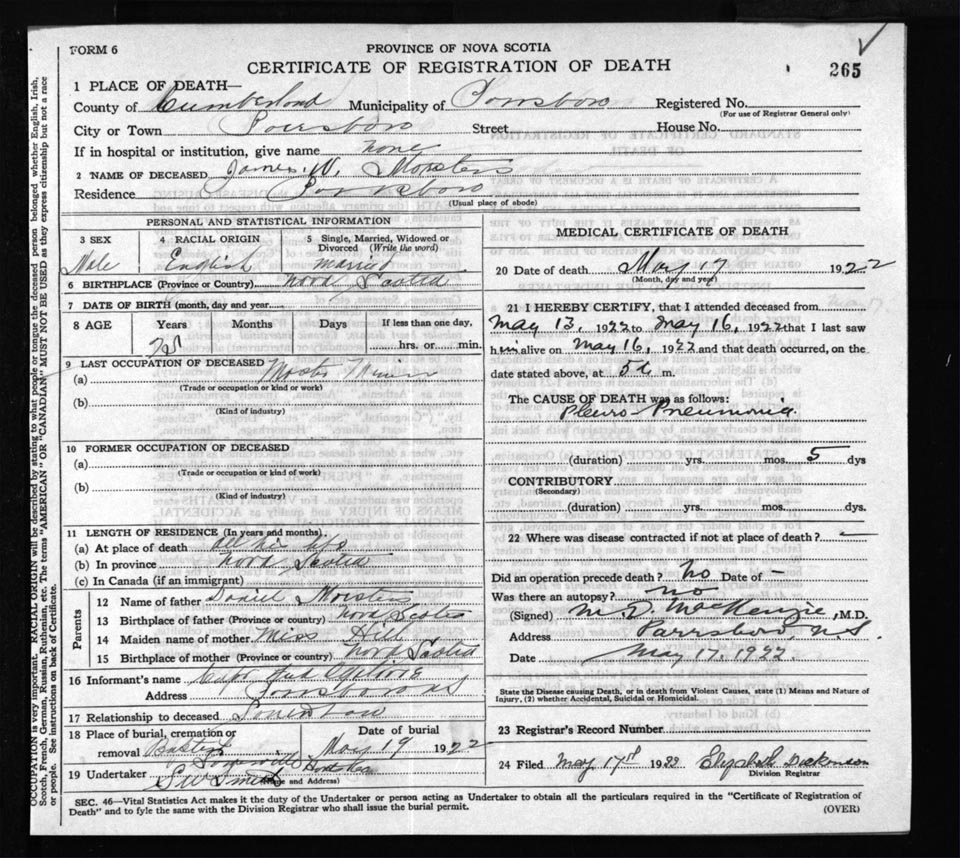 FORM 6
PROVINCE OF NOVA SCOTIA
CERTIFICATE OF REGISTRATION OF DEATH
265
1 PLACE OF DEATH—
County of Cumberland Municipality of Parrsboro Registered No.
(For use of Registrar General only)
City or Town Parrsboro Street House No.
If in hospital or institution, give name none
2 NAME OF DECEASED James W.
Residence Parrsboro
(Usual place of abode)
PERSONAL AND STATISTICAL INFORMATION
3 SEX 4 RACIAL ORIGIN 5 Single, Married, Widowed or Divorced (Write the word)
Male English married
6 BIRTHPLACE (Province or Country) Nova Scotia
7 DATE OF BIRTH (month, day and year)
8 AGE Years Months Days If less than one day,
hrs. or min.
9 LAST OCCUPATION OF DECEASED
(a)
(Trade or occupation or kind of work)
(b)
(Kind of industry)
10 FORMER OCCUPATION OF DECEASED
(a)
(Trade or occupation or kind of work)
(b)
(Kind of industry)
11 LENGTH OF RESIDENCE (In years and months)
(a) At place of death all his life
(b) In province Nova Scotia
(c) In Canada (if an immigrant)
Parents
12 Name of father Daniel
13 Birthplace of father (Province or country) Nova Scotia
14 Maiden name of mother Miss Hill
15 Birthplace of mother (Province or country) Nova Scotia
16 Informant's name Capt
Address Parrsboro NS
17 Relationship to deceased Son in law
18 Place of burial, cremation or removal Date of burial
Baptist May 19 1922
19 Undertaker
(Name and Address)
MEDICAL CERTIFICATE OF DEATH
20 Date of death May 17 1922
(Month, day and year)
21 I HEREBY CERTIFY, that I attended deceased from
May 13, 1922 to May 16, 1922 that I last saw
him alive on May 16, 1922 and that death occurred, on the
date stated above, at 5 a m.
The CAUSE OF DEATH was as follows:
Pleuro-Pneumonia.
(duration) yrs. mos. 5 dys
CONTRIBUTORY
(Secondary)
(duration) yrs. mos. dys.
22 Where was disease contracted if not at place of death? —
Did an operation precede death? No Date of —
Was there an autopsy? no
(Signed) M. D. MacKenzie, M.D.
Address Parrsboro, N.S.
Date May 17, 1922.
State the Disease causing Death, or in death from Violent Causes, state (1) Means and Nature of
Injury, (2) whether Accidental, Suicidal or Homicidal.
23 Registrar's Record Number
24 Filed May 17th 1922 Elizabeth Dickinson
Division Registrar
SEC. 46—Vital Statistics Act makes it the duty of the Undertaker or person acting as Undertaker to obtain all the particulars required in the "Certificate of Registration of
Death" and to fyle the same with the Division Registrar who shall issue the burial permit. (OVER)
OCCUPATION is very important. RACIAL ORIGIN will be described by stating to what people or tongue the deceased person belonged whether English, Irish,
Scotch, French, German, Russian, Ruthenian, etc. The terms "AMERICAN" OR "CANADIAN" MUST NOT BE USED as they express citizenship but not a race
or people. See instructions on back of Certificate.